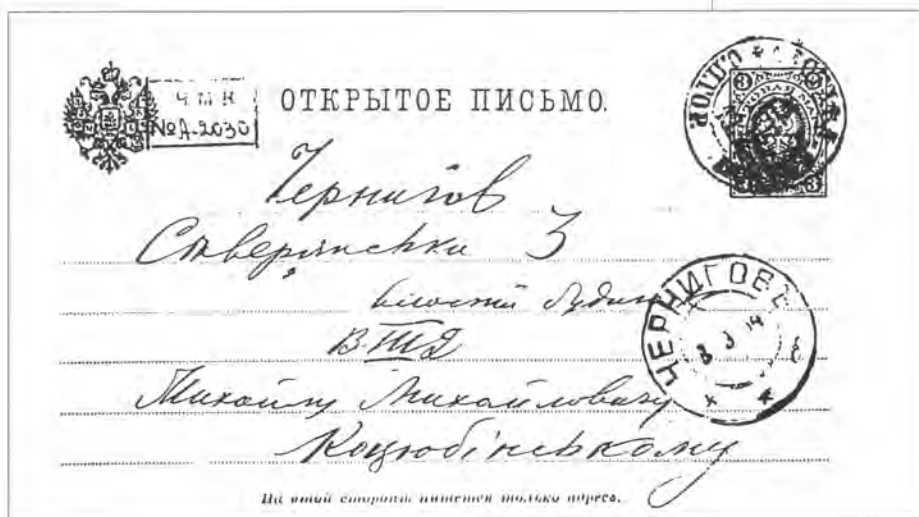 Ч М К
№ А-2030
ОТКРЫТОЕ ПИСЬМО.
3 3
Чернигов
Сѣверянська 3
власний
Михайлу Михайловичу
Коцюбінському
ЧЕРНИГОВЪ
8 3 14
На этой сторонѣ пишется только адресъ.